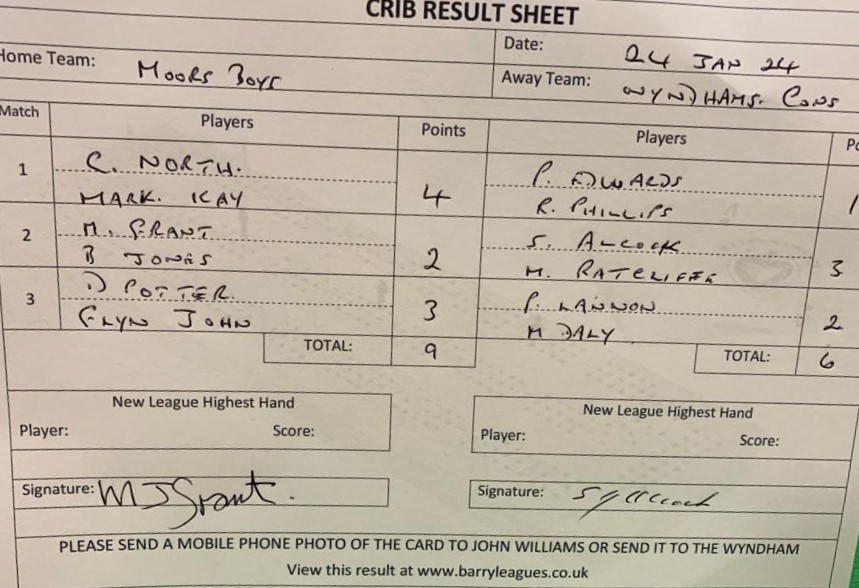 CRIB RESULT SHEET
Date: 24 JAN 24
Home Team: MOORS BOYS
Away Team: WYNDHAMS. CONS
Match Players Points Players
1 C. NORTH. P. EDWARDS
MARK. KAY 4 R. PHILLIPS 1
2 M. GRANT S. ALCOCK
B JONES 2 M. RATCLIFFE 3
3 D POTTER. P. LANNON
GLYN JOHN 3 M DALY 2
TOTAL: 9 TOTAL: 6
New League Highest Hand New League Highest Hand
Player: Score: Player: Score:
Signature: MJGrant. Signature:
PLEASE SEND A MOBILE PHONE PHOTO OF THE CARD TO JOHN WILLIAMS OR SEND IT TO THE WYNDHAM
View this result at www.barryleagues.co.uk